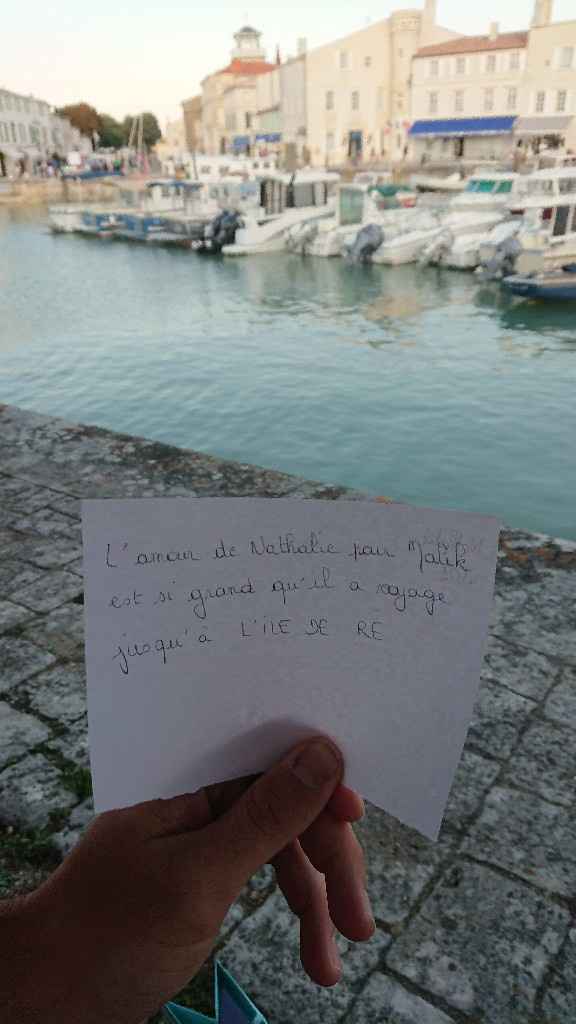 L'amour de Nathalie pour Malik
est si grand qu'il a voyagé
jusqu'à L'ILE DE RE